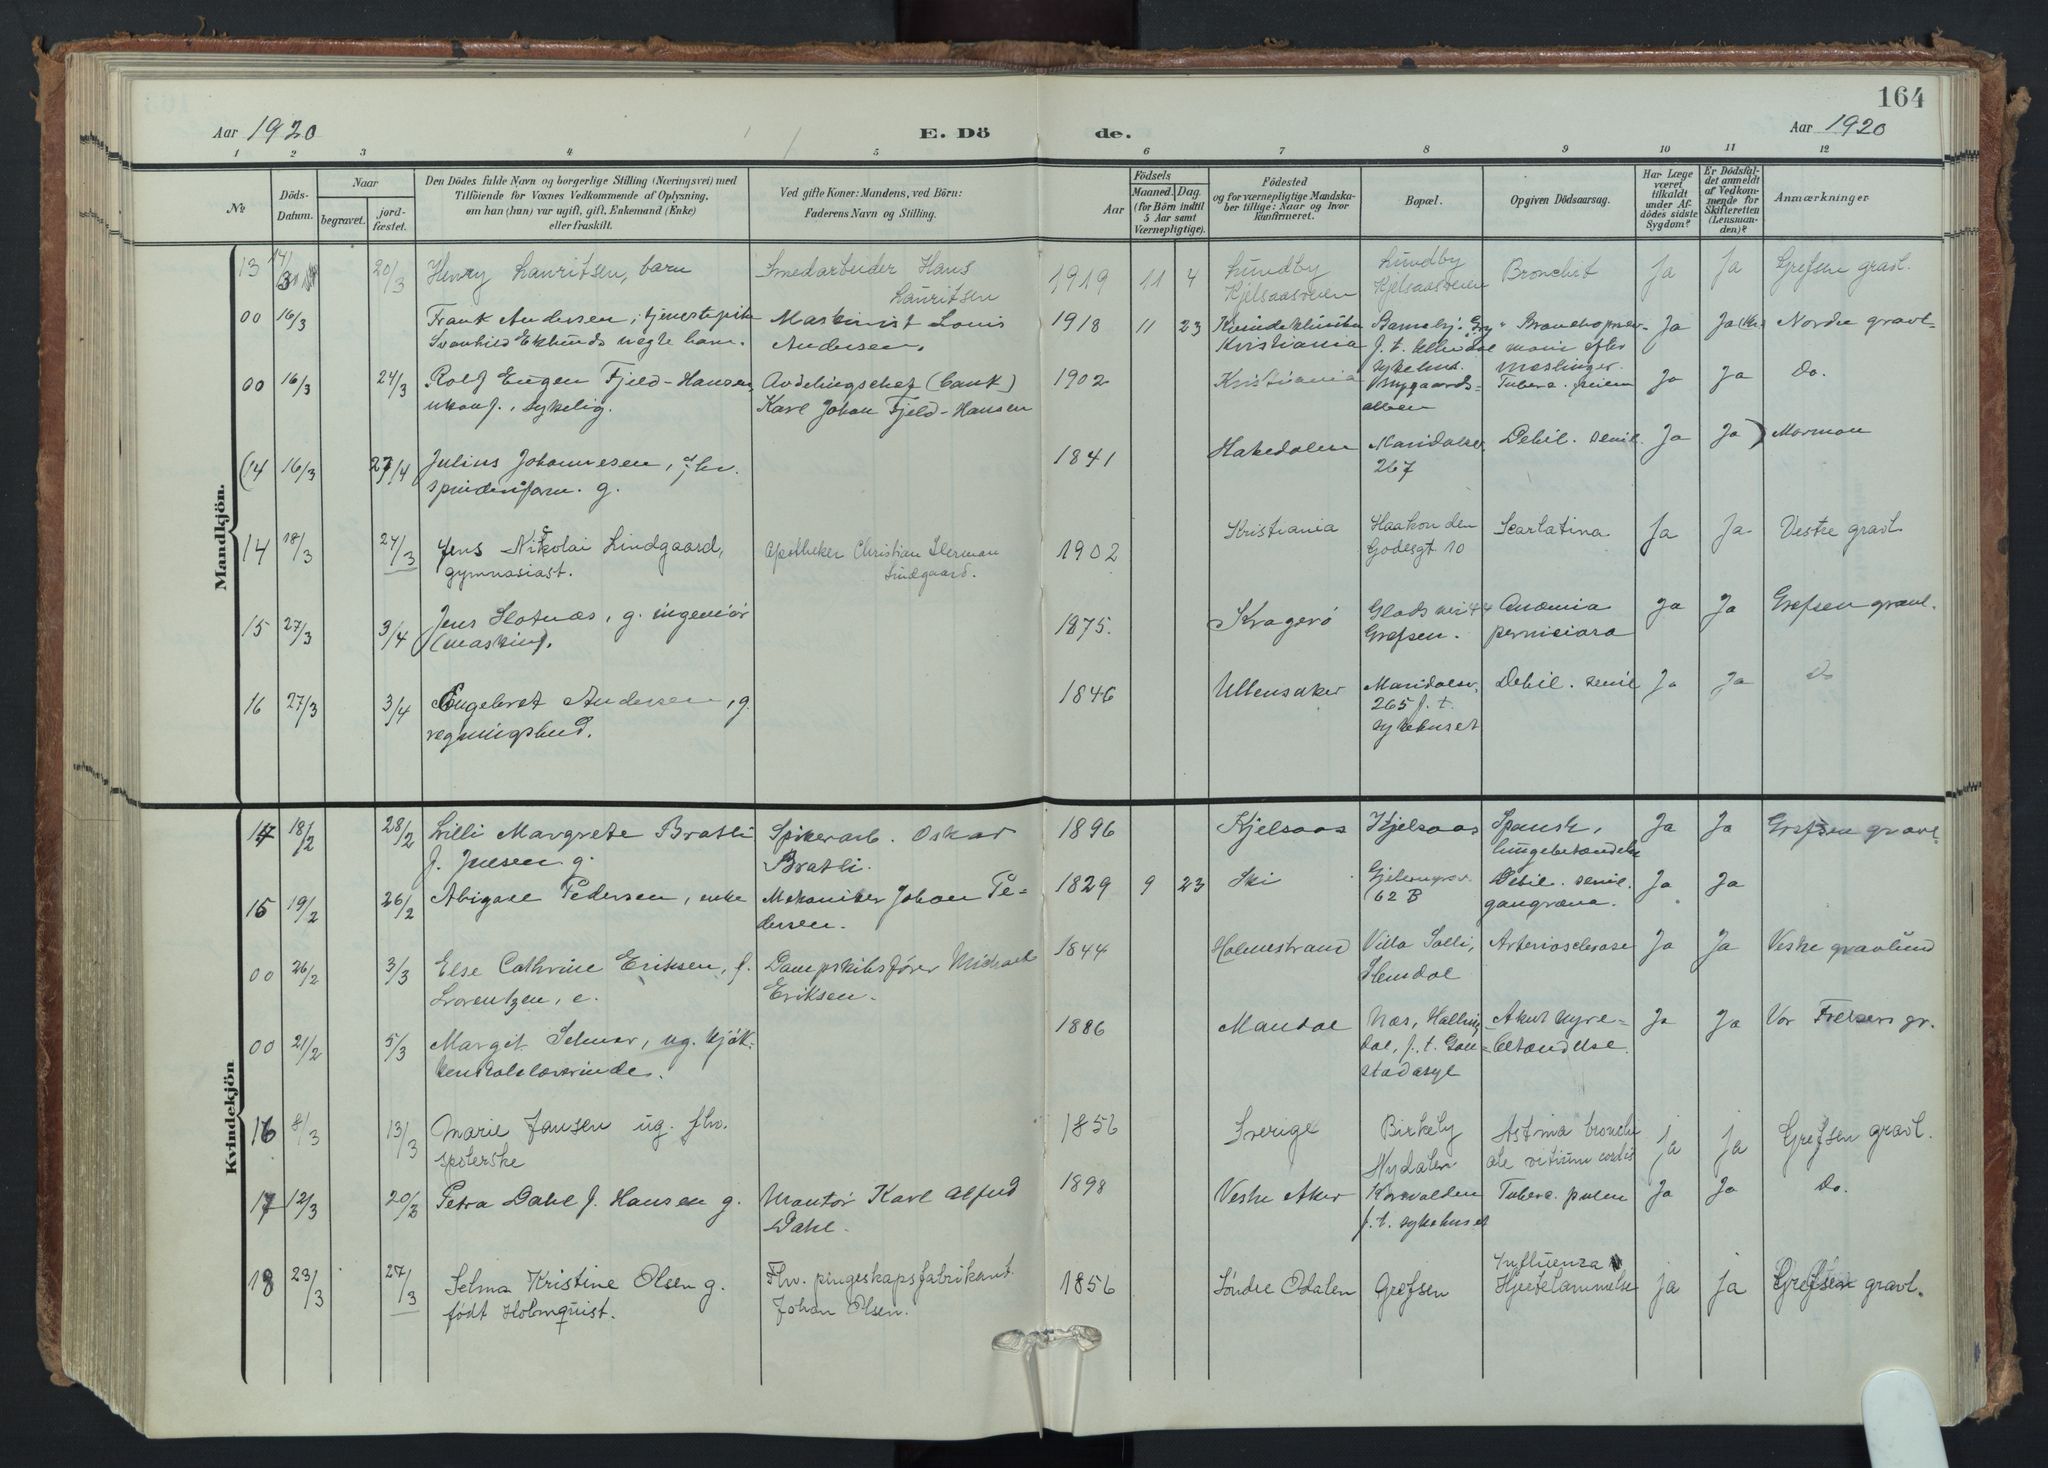 164
Aar 1920
E. Dö
de.
Aar 1920
1 2 3 4 5 6 7 8 9 10 11 12
№
Döds-
Datum.
Naar
begravet.
jord-
fæstet.
Den Dödes fulde Navn og borgerlige Stilling (Næringsvei) med
Tilföiende for Voxnes Vedkommende af Oplysning,
om han (hun) var ugift, gift, Enkemand (Enke)
eller fraskilt.
Ved gifte Koner: Mandens, ved Börn:
Faderens Navn og Stilling.
Födsels
Aar
Maaned. Dag.
(for Börn indtil
5 Aar samt
Værnepligtige).
Födested
og for værnepligtige Mandska-
ber tillige: Naar og hvor
konfirmeret.
Bopæl.
Opgiven Dödsaarsag.
Har Læge
været
tilkaldt
under Af-
dödes sidste
Sygdom?
Er Dödsfal-
det anmeldt
af Vedkom-
mende for
Skifteretten
(Lensman-
den)?
Anmærkninger
Mandkjön.
13 20/3 Henry Lauritsen, barn Smedarbeider Hans 1919 11 4 Lundby Lundby Bronchit Ja Ja Grefsen gravl.
Lauritsen Kjelsaasveien Kjelsaasveien
00 16/3 Frank Andersen, tjenestepike Maskinist Louis 1918 11 23 Kvindeklinikken Bronchopneu- Ja Ja Nordre gravl-
Svanhild Eklunds uegte barn. Andersen. Kristiania moni efter
meslinger.
00 16/3 24/3 Rolf Eugen Fjeld-Hansen, Avdelingschef (bank) 1902 Kristiania sykehus. Tuberc. Ja Ja Do.
ukonf., sykelig. Karl Johan Fjeld-Hansen alleen
(14 16/3 27/4 Julius Johannesen, fhv. 1841 Hakedalen Maridalsv. Debil. senil. Ja Ja) Mormon
g. 267
14 18/3 24/3 Jens Nikolai Lindgaard, Apotheker Christian Herman 1902 Kristiania Haakon den Scarlatina Ja Ja Vestre gravl.
gymnasiast. Lindgaard. Godesgt 10
15 27/3 3/4 Jens Slotnæs, g. ingeniør 1875. Kragerø 44 Anæmia Ja Ja Grefsen gravl.
(maskin). Grefsen. perniciosa
16 27/3 3/4 Engebret Andersen, g. 1846 Ullensaker Maridalsv. Debil. senil Ja Ja Do
regningsbud. 265 f. t.
sykehuset
Kvindekjön
14 18/2 28/2 Lilli Margrete Bratli Spikerarb. Oskar 1896 Kjelsaas Kjelsaas Spansk, Ja Ja Grefsen gravl.
f. Juesen g. Bratli. lungebetændelse
15 19/2 26/2 Abigael Pedersen, enke Mekaniker Johan Pe- 1829 9 23 Ski Debil. senil. Ja Ja
dersen. 62 B gangræna.
00 26/2 3/3 Else Cathrine Eriksen, f. Dampskibsfører Michael 1844 Holmestrand Villa Solli, Arteriosclerose Ja Ja Vestre gravlund
Lorentzen, e. Eriksen. Slemdal
00 21/2 5/3 Margit Selmer, ug. kjøk- 1886 Mandal Næs, Halling- Akut nyre- Ja Ja Vor Frelsers gr.
kenskolelærerinde. dal, f. t. Gau- betændelse.
stadasyl
16 8/3 13/3 Marie Jansen ug. fhv. 1856 Sverige Birkely Astma bronchi ja ja Grefsen gravl.
spolerske Nydalen ale vitium cordis
17 12/3 20/3 Petra Dahl f. Hansen g. Montør Karl Alfred 1898 Vestre Aker Korsvolden Tuberc. pulm Ja Ja Do.
Dahl. f. t. sykehuset
18 23/3 27/3 Selma Kristine Olsen g. Fhv. pengeskapsfabrikant 1856 Søndre Odalen Grefsen Influenza ja ja Grefsen gravl.
født Holmquist. Johan Olsen. Hjertelammelse